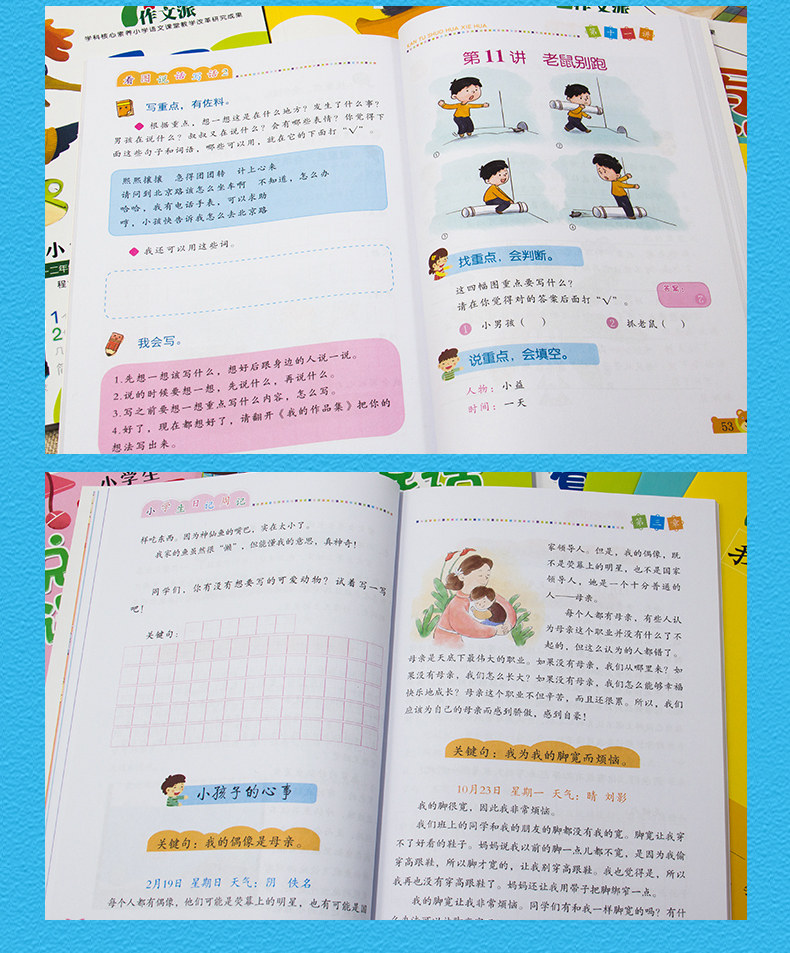 作文派
学科核心素养小学语文课堂教学改革研究成果
看图说话写话2
写重点，有佐料。
根据重点，想一想这是在什么地方？发生了什么事？
男孩在说什么？叔叔又在说什么？会有哪些表情？你觉得下
面这些句子和词语，哪些可以用，就在它的下面打“√”。
熙熙攘攘 急得团团转 计上心来
请问到北京路该怎么坐车啊 不知道，怎么办
哈哈，我有电话手表，可以求助
哼，小孩快告诉我怎么去北京路
我还可以用这些词。
我会写。
1.先想一想该写什么，想好后跟身边的人说一说。
2.说的时候要想一想，先说什么，再说什么。
3.写之前要想一想重点写什么内容，怎么写。
4.好了，现在都想好了，请翻开《我的作品集》把你的
想法写出来。
KAN TU SHUO HUA XIE HUA
第十一讲
第11讲 老鼠别跑
①
②
③
④
找重点，会判断。
这四幅图重点要写什么？
请在你觉得对的答案后面打“√”。
答案：
②
1 小男孩（ ） 2 抓老鼠（ ）
说重点，会填空。
人物：小益
时间：一天
53
小学生
小学生日记周记
样吃东西。因为神仙鱼的嘴巴，实在太小了。
我家的鱼虽然很“懒”，但能懂我的意思，真神奇！
同学们，你有没有想要写的可爱动物？试着写一写
吧！
关键句：
小孩子的心事
关键句：我的偶像是母亲。
2月19日 星期日 天气：阴 佚名
每个人都有偶像，他们可能是荧幕上的明星，也有可能是国
第三章
家领导人。但是，我的偶像，既
不是荧幕上的明星，也不是国家
领导人，她是一个十分普通的
人——母亲。
每个人都有母亲，有些人认
为母亲这个职业并没有什么了不
起的，但这么认为的人都错了。
母亲是天底下最伟大的职业。如果没有母亲，我们从哪里来？如
果没有母亲，我们怎么长大？如果没有母亲，我们怎么能够幸福
快乐地成长？母亲这个职业不但辛苦，而且还很累。所以，我们
应该为自己的母亲而感到骄傲，感到自豪！
关键句：我为我的脚宽而烦恼。
10月23日 星期一 天气：晴 刘影
我的脚很宽，因此我非常烦恼。
我们班上的同学和我的朋友的脚都没有我的宽。脚宽让我穿
不了好看的鞋子。妈妈说我以前的脚一点儿都不宽，是因为我偷
穿高跟鞋，所以脚才宽的，让我别穿高跟鞋。我也觉得是，所以
我再也没有穿高跟鞋了。妈妈还让我用带子把脚绑窄一点。
我的脚宽让我非常烦恼。同学们有和我一样脚宽的吗？有什